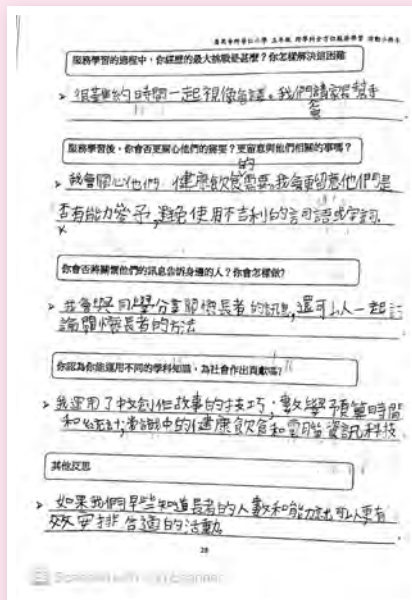 嘉民會所聖仁小學 五年級 跨學科全方位服務學習 活動小冊子
服務學習的過程中，你經歷的最大挑戰是甚麼？你怎樣解決這困難
很難約時間一起視像會議。我們請家長幫手
服務學習後，你會否更關心他們的需要？更留意與他們相關的事嗎？
我會關心他們的健康飲食需要。我會更留意他們是
否有能力參予，避免使用不吉利的詞語或字詞
你會否將關懷他們的訊息告訴身邊的人？你會怎樣做？
我會與同學分享關懷長者的訊息，還可以一起討
論關懷長者的方法
你認為你能運用不同的學科知識，為社會作出貢獻嗎？
我運用了中文創作故事的技巧；數學預算時間
和統計；常識中的健康飲食和電腦資訊科技
其他反思
如果我們早些知道長者的人數和能力就可以更有
效安排合適的活動